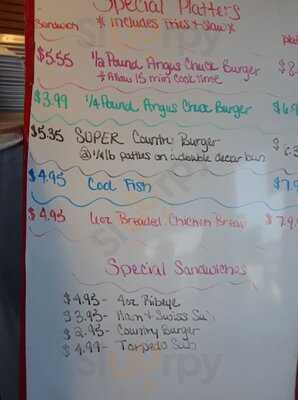 Special Platters
Sandwich * includes fries & slaw *
$5.55 1/2 Pound Angus Chuck Burger $8
* Allow 15 min cook time
$3.99 1/4 Pound Angus Chuck Burger $6.9
$5.35 SUPER Country Burger $
(2) 1/4 lb patties on a double decker bun
$4.95 Cod Fish $7.9
$4.95 4oz Breaded Chicken Breast $7.9
Special Sandwiches
$4.95- 4oz Ribeye
$3.95- Ham & Swiss Sub
$2.95- Country Burger
$4.99- Torpedo Sub